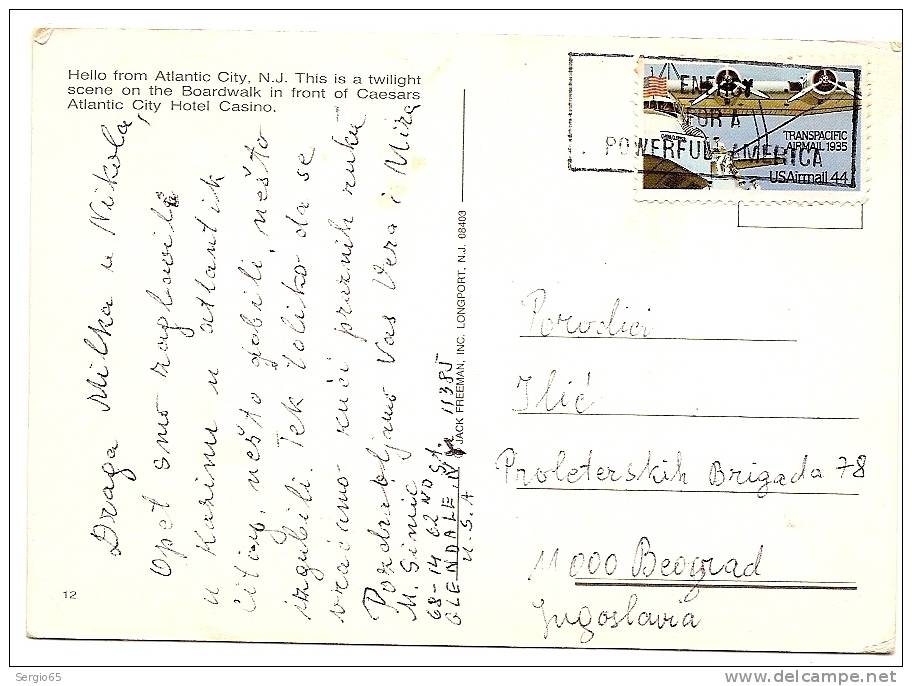 Hello from Atlantic City, N.J. This is a twilight
scene on the Boardwalk in front of Caesars
Atlantic City Hotel Casino.
Draga Milka u Nikola,
Opet smo zaglavili
u Kazinu u atlantik
Citiu, nešto dobili, nešto
izgubili. Tek toliko da se
vraćamo kući praznih ruku
Pozdravljamo Vas Vera i Mira
M. Simic
68-14 62ND St.
GLENDALE, N.Y. 11385
U.S.A
12
JACK FREEMAN, INC. LONGPORT, N.J. 08403
ENERGY
FOR A
POWERFUL AMERICA
TRANSPACIFIC
AIRMAIL 1935
USAirmail 44
Porodici
Ilić
Proleterskih Brigada 78
11000 Beograd
Jugoslavia
Sergio65
delcampe.net